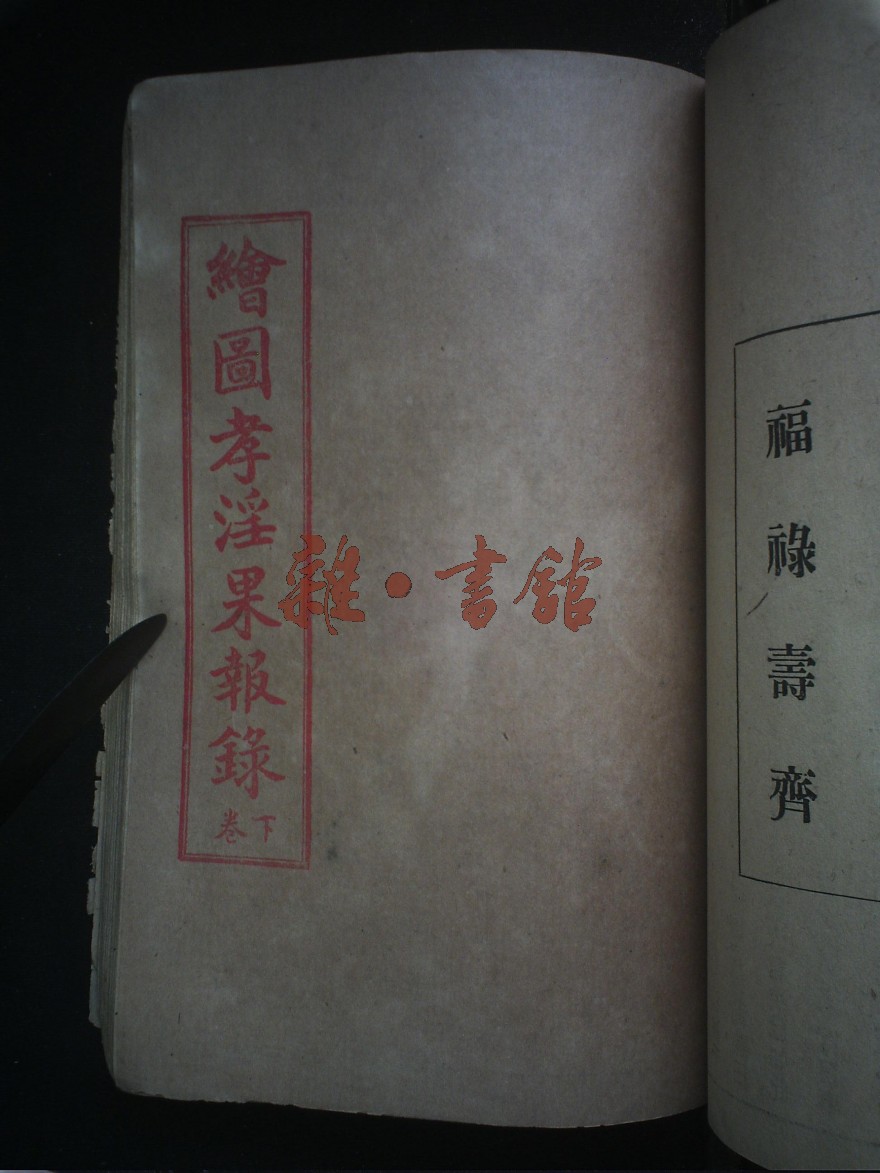 福祿壽齊
繪圖孝淫果報錄
下卷
雜·書館